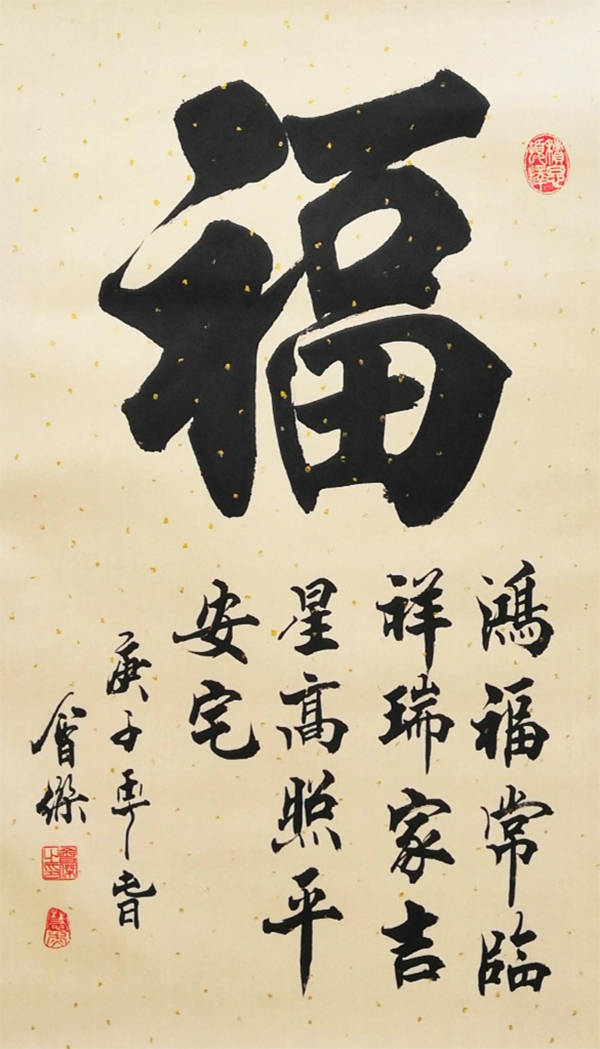 福
鴻福常臨
祥瑞家吉
星高照平
安宅
庚子年春
會傑